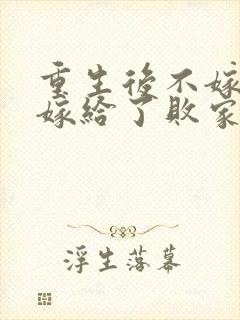 重生後不嫁
嫁給了敗家
浮生落幕